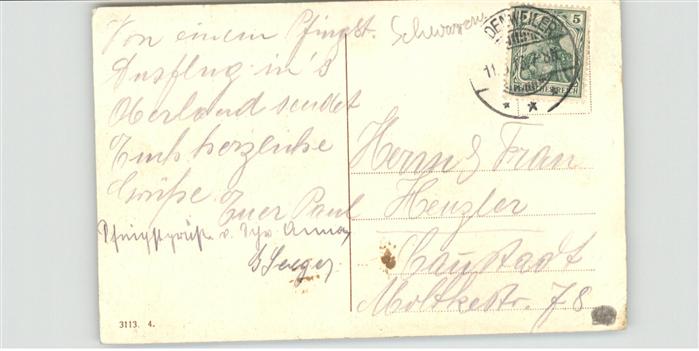 Von einem Pfingst.
Ausflug in's
Oberland sendet
Euch herzliche
Grüße Euer Paul
Pfingstgrüße v. Schw. Anna
G Seeger.
3113. 4.
5
Herrn & Frau
Henzler
Cannstadt
Moltkestr. 78